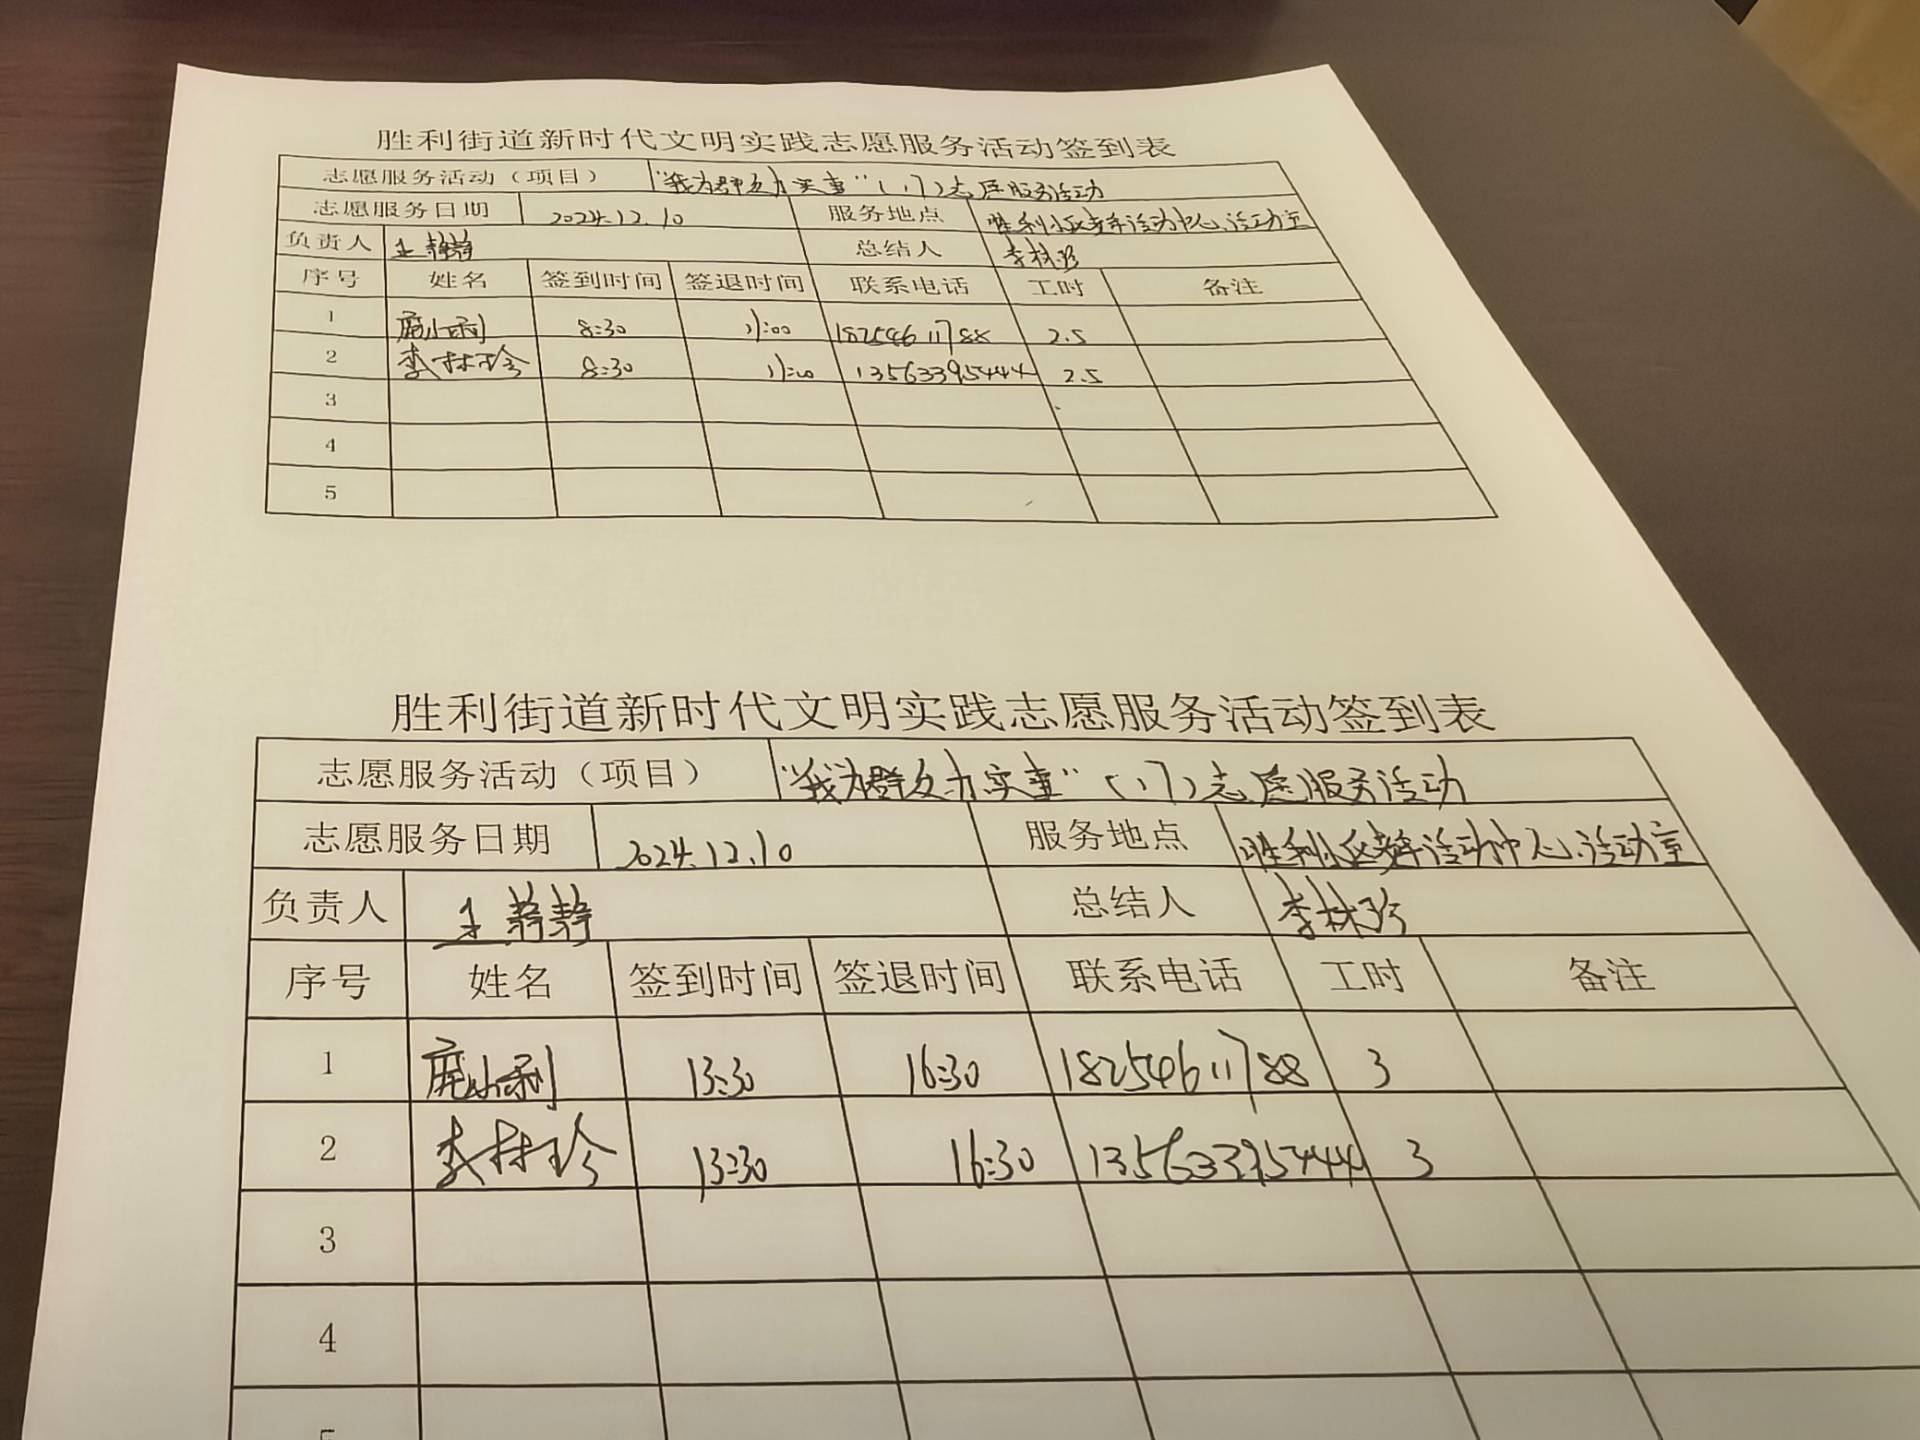 胜利街道新时代文明实践志愿服务活动签到表
志愿服务活动（项目） “我为群众办实事”（17）志愿服务活动
志愿服务日期 2024.12.10 服务地点 胜利小区老年活动中心、活动室
负责人 王静静 总结人 李林珍
序号 姓名 签到时间 签退时间 联系电话 工时 备注
1 庞小利 8:30 11:00 18254611788 2.5
2 李林珍 8:30 11:00 13563395444 2.5
3
4
5
胜利街道新时代文明实践志愿服务活动签到表
志愿服务活动（项目） “我为群众办实事”（17）志愿服务活动
志愿服务日期 2024.12.10 服务地点 胜利小区老年活动中心、活动室
负责人 王静静 总结人 李林珍
序号 姓名 签到时间 签退时间 联系电话 工时 备注
1 庞小利 13:30 16:30 18254611788 3
2 李林珍 13:30 16:30 13563395444 3
3
4